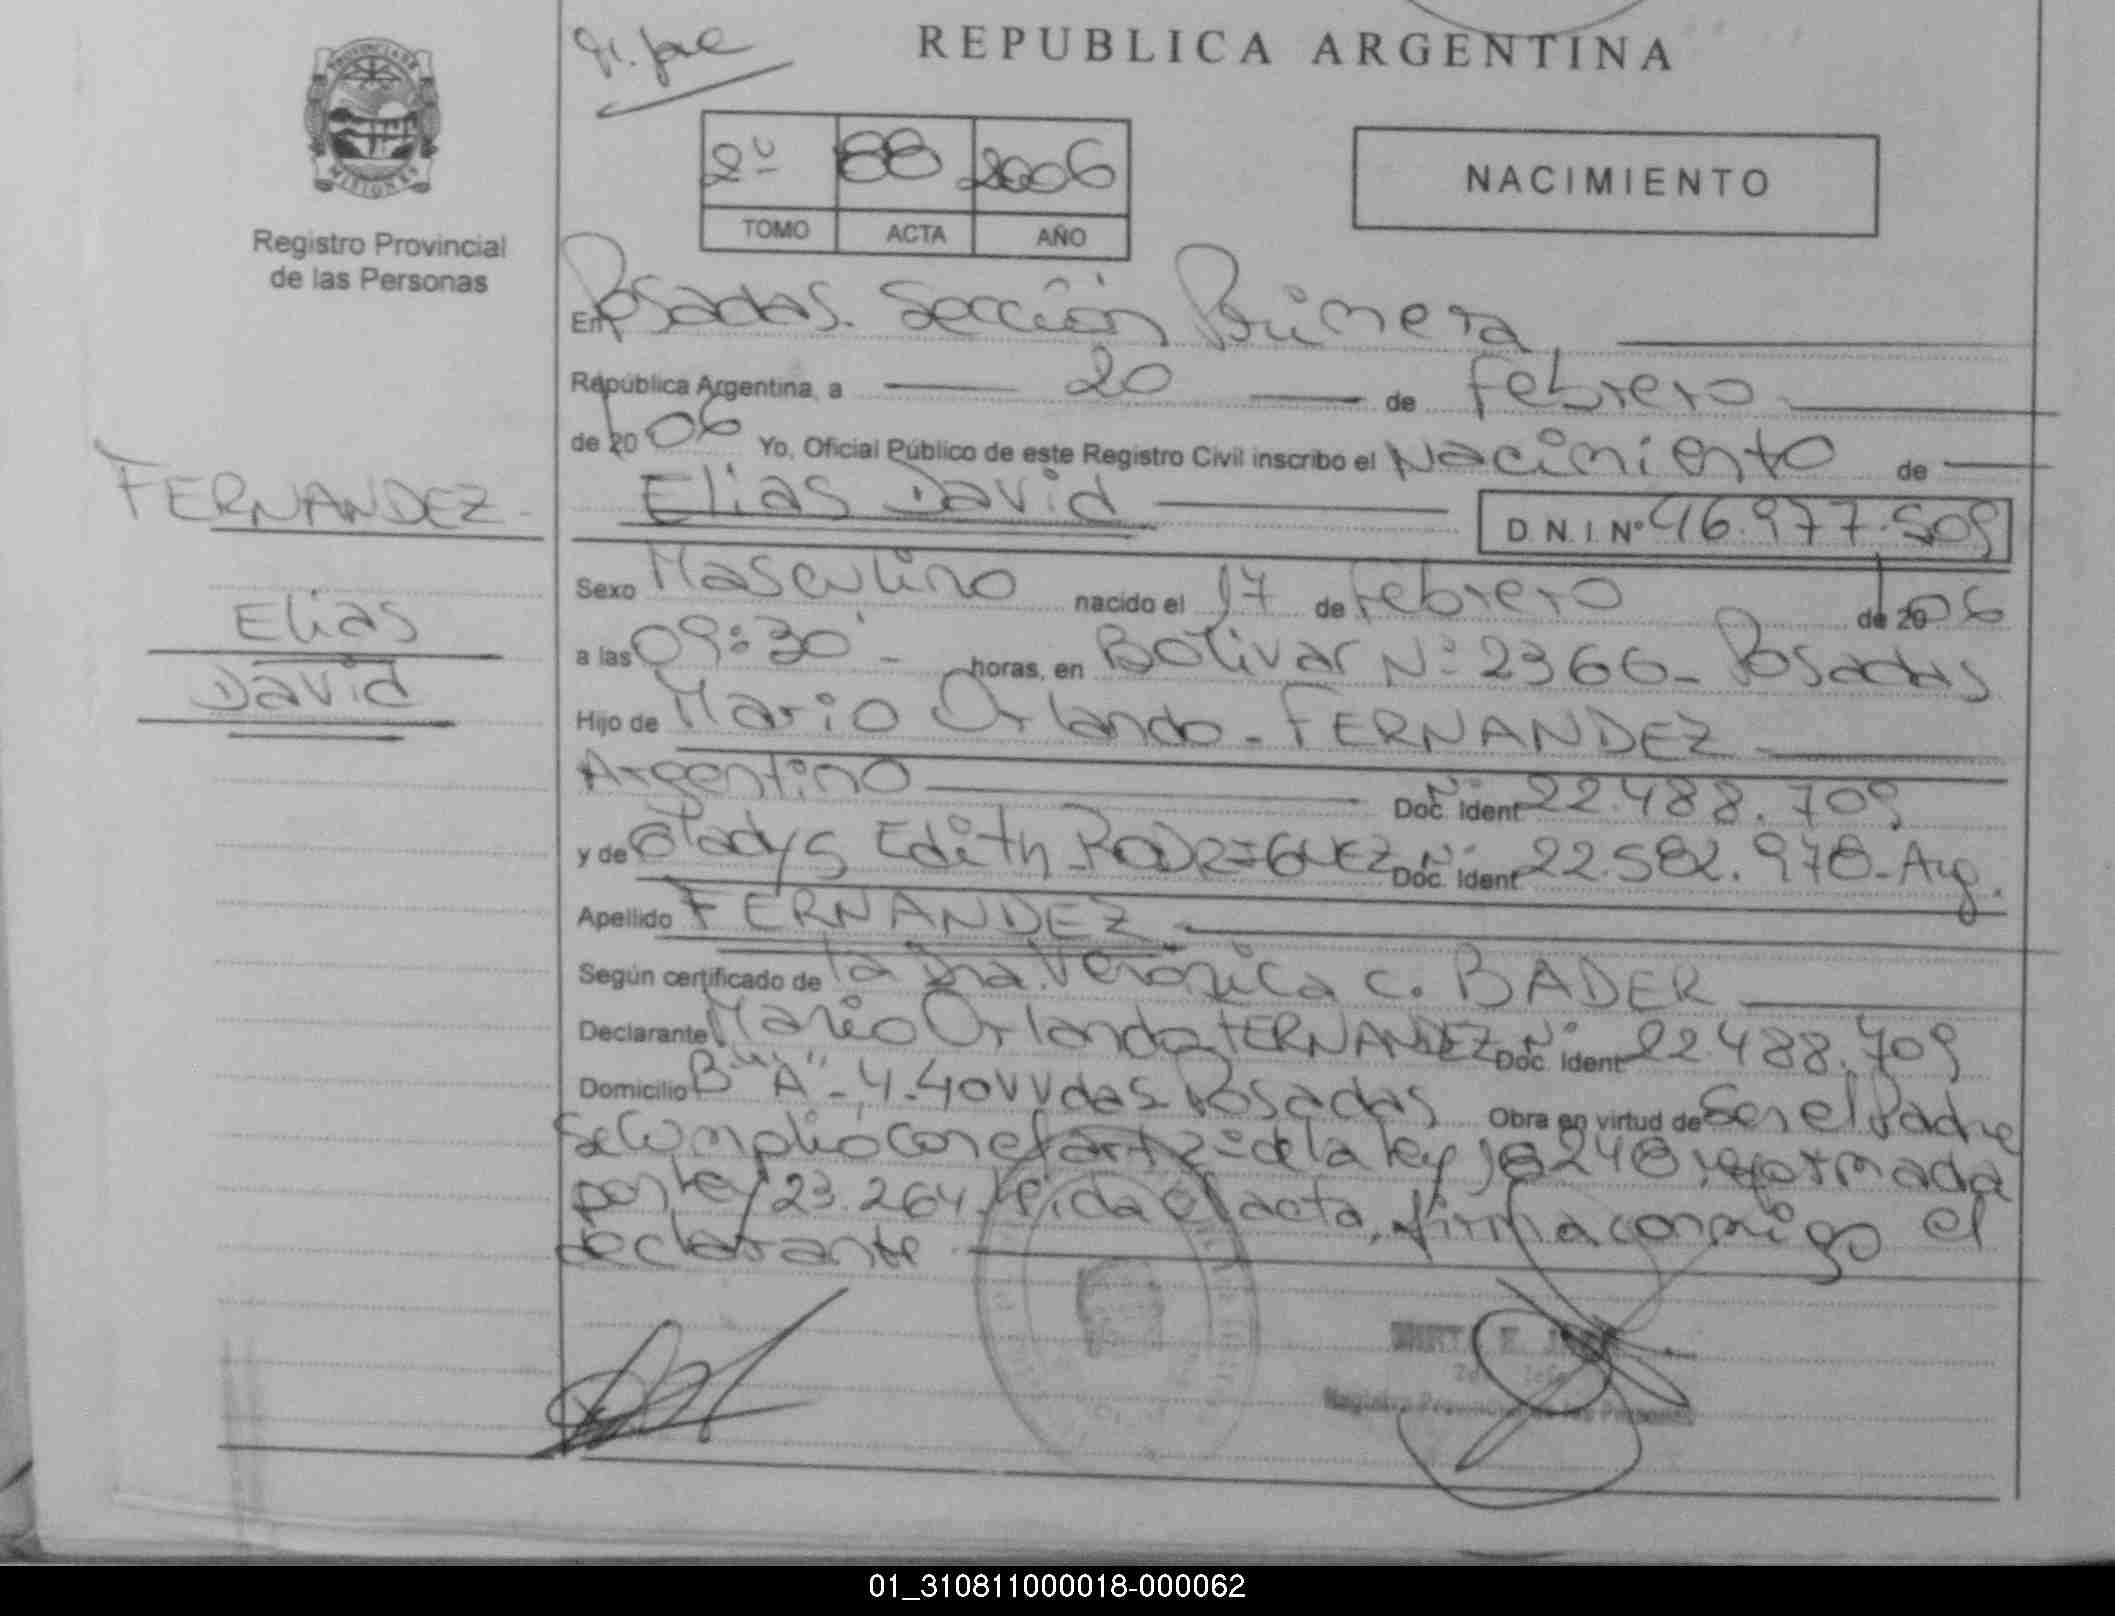 REPUBLICA ARGENTINA
PROVINCIA DE
MISIONES
Registro Provincial
de las Personas
2º 88 2006
TOMO ACTA AÑO
NACIMIENTO
En Posadas. Sección Primera
República Argentina, a 20 de Febrero
de 20 06 Yo, Oficial Público de este Registro Civil inscribo el Nacimiento de
FERNANDEZ-
Elias David D.N.I. Nº 46.977.509
Elias
David
Sexo Masculino nacido el 17 de Febrero de 20 06
a las 09:30' - horas, en Bolivar Nº 2366- Posadas
Hijo de Mario Orlando - FERNANDEZ
Argentino Doc. Ident Nº 22.488.709
y de Gladys Edith RODRIGUEZ Doc. Ident Nº 22.582.978- Arg.
Apellido FERNANDEZ
Según certificado de la Dra. Veronica C. BADER
Declarante Mario Orlando FERNANDEZ Doc. Ident Nº 22.488.709
Domicilio Bº "A" - 4-40 VVdas Posadas Obra en virtud de Ser el Padre
Se Cumplio con el art 2º de la ley 18248 reformada
por ley 23.264. Leida el acta, firma conmigo el
declarante
Registro Provincial de las Personas
01_310811000018-000062